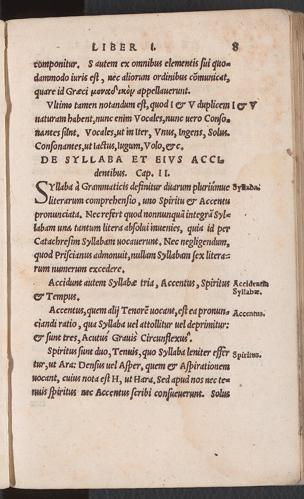 LIBER I. 8
componitur. S autem ex omnibus elementis sui quo-
dammodo iuris est, nec aliorum ordinibus cõmunicat,
quare id Græci μοναδικὸν appellauerunt.
Vltimo tamen notandum est, quod I & V duplicem I & V
naturam habent, nunc enim Vocales, nunc uero Conso-
nantes sunt. Vocales, ut in Iter, Vnus, Ingens, Solus.
Consonantes, ut Iactus, Iugum, Volo, &c.
DE SYLLABA ET EIVS ACCI
dentibus. Cap. II.
Syllaba à Grammaticis definitur duarum pluriúmue Syllaba.
literarum comprehensio, uno Spiritu & Accentu
pronunciata. Nec refert quod nonnunquã integrã Syl-
labam una tantum litera absolui inuenies, quia id per
Catachresim Syllabam uocauerunt. Nec negligendum,
quod Priscianus admonuit, nullam Syllabam sex litera-
rum numerum excedere.
Accidunt autem Syllabæ tria, Accentus, Spiritus Accidentia
& Tempus. Syllabæ.
Accentus, quem alij Tenorẽ uocant, est ea pronun- Accentus.
ciandi ratio, qua Syllaba uel attollitur uel deprimitur:
& sunt tres, Acutus Grauis Circunflexus.
Spiritus sunt duo, Tenuis, quo Syllaba leniter effer Spiritus.
tur, ut Ara: Densus uel Asper, quem & Aspirationem
uocant, cuius nota est H, ut Hara. Sed apud nos nec te-
nuis spiritus nec Accentus scribi consueuerunt. Solus